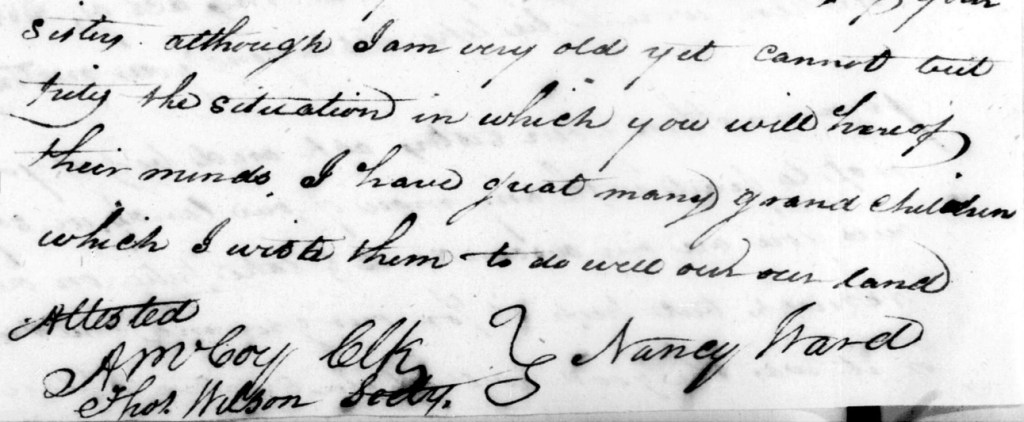 your
sister. although I am very old yet cannot but
pity the situation in which you will here of
their minds. I have great many grand children
which I wrote them to do well our our land
Attested
A McCoy Clk } Nancy Ward
Thos. Wilson Secty.